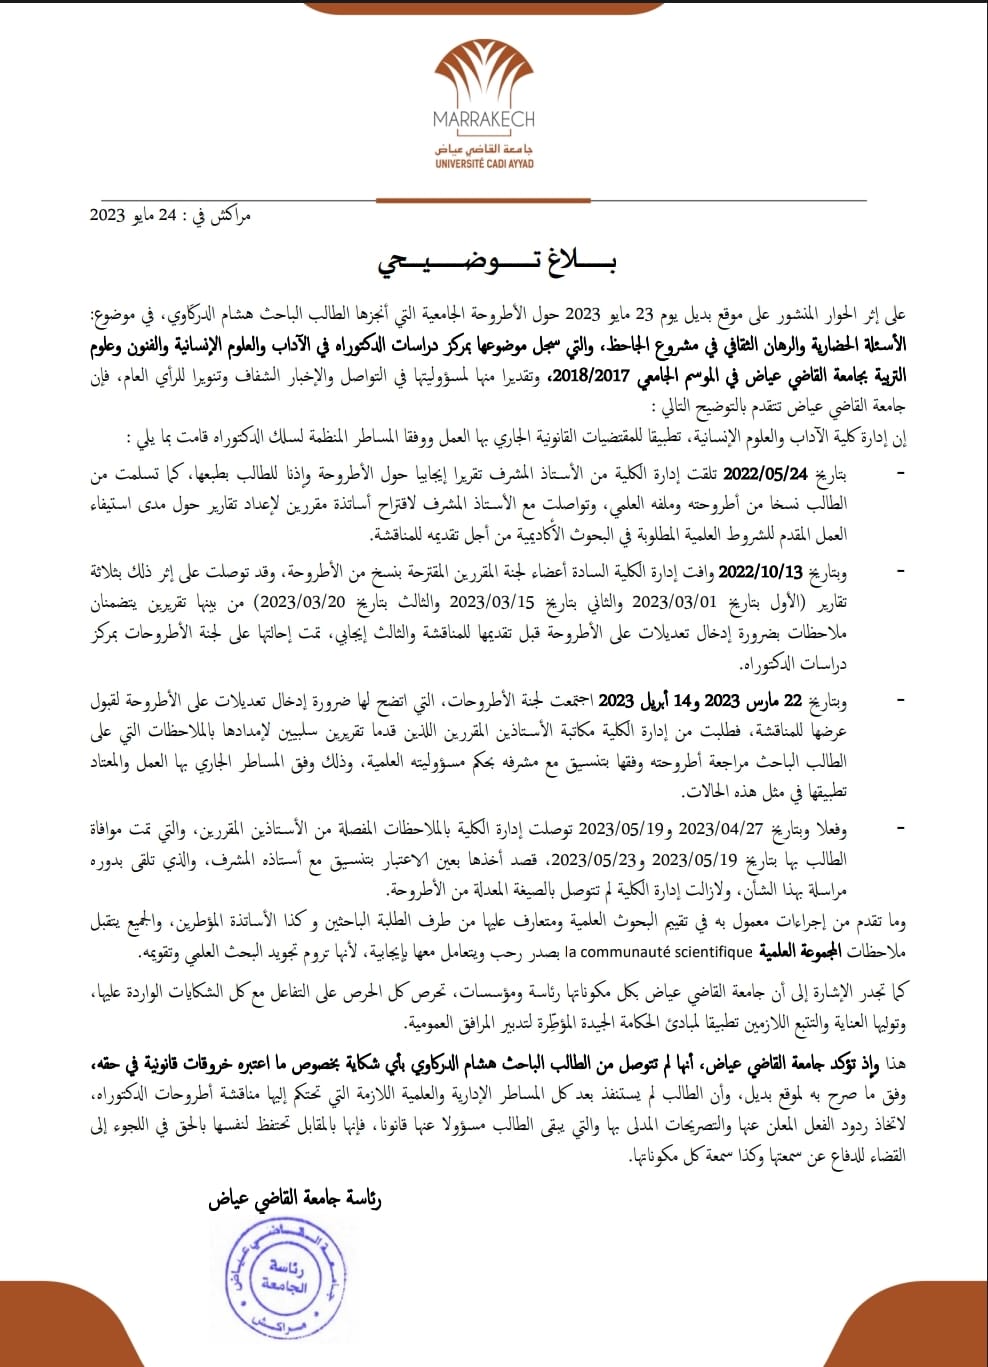 MARRAKECH
جامعة القاضي عياض
UNIVERSITÉ CADI AYYAD
مراكش في : 24 مايو 2023
بـــلاغ تـــوضـــيـــحي
على إثر الحوار المنشور على موقع بديل يوم 23 مايو 2023 حول الأطروحة الجامعية التي أنجزها الطالب الباحث هشام الدركاوي، في موضوع:
الأسئلة الحضارية والرهان الثقافي في مشروع الجاحظ، والتي سجل موضوعها بمركز دراسات الدكتوراه في الآداب والعلوم الإنسانية والفنون وعلوم
التربية بجامعة القاضي عياض في الموسم الجامعي 2018/2017، وتقديرا منها لمسؤوليتها في التواصل والإخبار الشفاف وتنويرا للرأي العام، فإن
جامعة القاضي عياض تتقدم بالتوضيح التالي :
إن إدارة كلية الآداب والعلوم الإنسانية، تطبيقا للمقتضيات القانونية الجاري بها العمل ووفقا المساطر المنظمة لسلك الدكتوراه قامت بما يلي :
- بتاريخ 2022/05/24 تلقت إدارة الكلية من الأستاذ المشرف تقريرا إيجابيا حول الأطروحة وإذنا للطالب بطبعها، كما تسلمت من
الطالب نسخا من أطروحته وملفه العلمي، وتواصلت مع الأستاذ المشرف لاقتراح أساتذة مقررين لإعداد تقارير حول مدى استيفاء
العمل المقدم للشروط العلمية المطلوبة في البحوث الأكاديمية من أجل تقديمه للمناقشة.
- وبتاريخ 2022/10/13 وافت إدارة الكلية السادة أعضاء لجنة المقررين المقترحة بنسخ من الأطروحة، وقد توصلت على إثر ذلك بثلاثة
تقارير (الأول بتاريخ 2023/03/01 والثاني بتاريخ 2023/03/15 والثالث بتاريخ 2023/03/20) من بينها تقريرين يتضمنان
ملاحظات بضرورة إدخال تعديلات على الأطروحة قبل تقديمها للمناقشة والثالث إيجابي، تمت إحالتها على لجنة الأطروحات بمركز
دراسات الدكتوراه.
- وبتاريخ 22 مارس 2023 و14 أبريل 2023 اجتمعت لجنة الأطروحات، التي اتضح لها ضرورة إدخال تعديلات على الأطروحة لقبول
عرضها للمناقشة، فطلبت من إدارة الكلية مكاتبة الأستاذين المقررين اللذين قدما تقريرين سلبيين لإمدادها بالملاحظات التي على
الطالب الباحث مراجعة أطروحته وفقها بتنسيق مع مشرفه بحكم مسؤوليته العلمية، وذلك وفق المساطر الجاري بها العمل والمعتاد
تطبيقها في مثل هذه الحالات.
- وفعلا وبتاريخ 2023/04/27 و2023/05/19 توصلت إدارة الكلية بالملاحظات المفصلة من الأستاذين المقررين، والتي تمت موافاة
الطالب بها بتاريخ 2023/05/19 و2023/05/23، قصد أخذها بعين الاعتبار بتنسيق مع أستاذه المشرف، والذي تلقى بدوره
مراسلة بهذا الشأن، ولازالت إدارة الكلية لم تتوصل بالصيغة المعدلة من الأطروحة.
وما تقدم من إجراءات معمول به في تقييم البحوث العلمية ومتعارف عليها من طرف الطلبة الباحثين و كذا الأساتذة المؤطرين، والجميع يتقبل
ملاحظات المجموعة العلمية la communauté scientifique بصدر رحب ويتعامل معها بإيجابية، لأنها تروم تجويد البحث العلمي وتقويمه.
كما تجدر الإشارة إلى أن جامعة القاضي عياض بكل مكوناتها رئاسة ومؤسسات، تحرص كل الحرص على التفاعل مع كل الشكايات الواردة عليها،
وتوليها العناية والتتبع اللازمين تطبيقا لمبادئ الحكامة الجيدة المؤطِّرة لتدبير المرافق العمومية.
هذا وإذ تؤكد جامعة القاضي عياض، أنها لم تتوصل من الطالب الباحث هشام الدركاوي بأي شكاية بخصوص ما اعتبره خروقات قانونية في حقه،
وفق ما صرح به لموقع بديل، وأن الطالب لم يستنفذ بعد كل المساطر الإدارية والعلمية اللازمة التي تحتكم إليها مناقشة أطروحات الدكتوراه،
لاتخاذ ردود الفعل المعلن عنها والتصريحات المدلى بها والتي يبقى الطالب مسؤولا عنها قانونا، فإنها بالمقابل تحتفظ لنفسها بالحق في اللجوء إلى
القضاء للدفاع عن سمعتها وكذا سمعة كل مكوناتها.
رئاسة جامعة القاضي عياض
جامعة القاضي عياض
رئاسة
الجامعة
مراكش